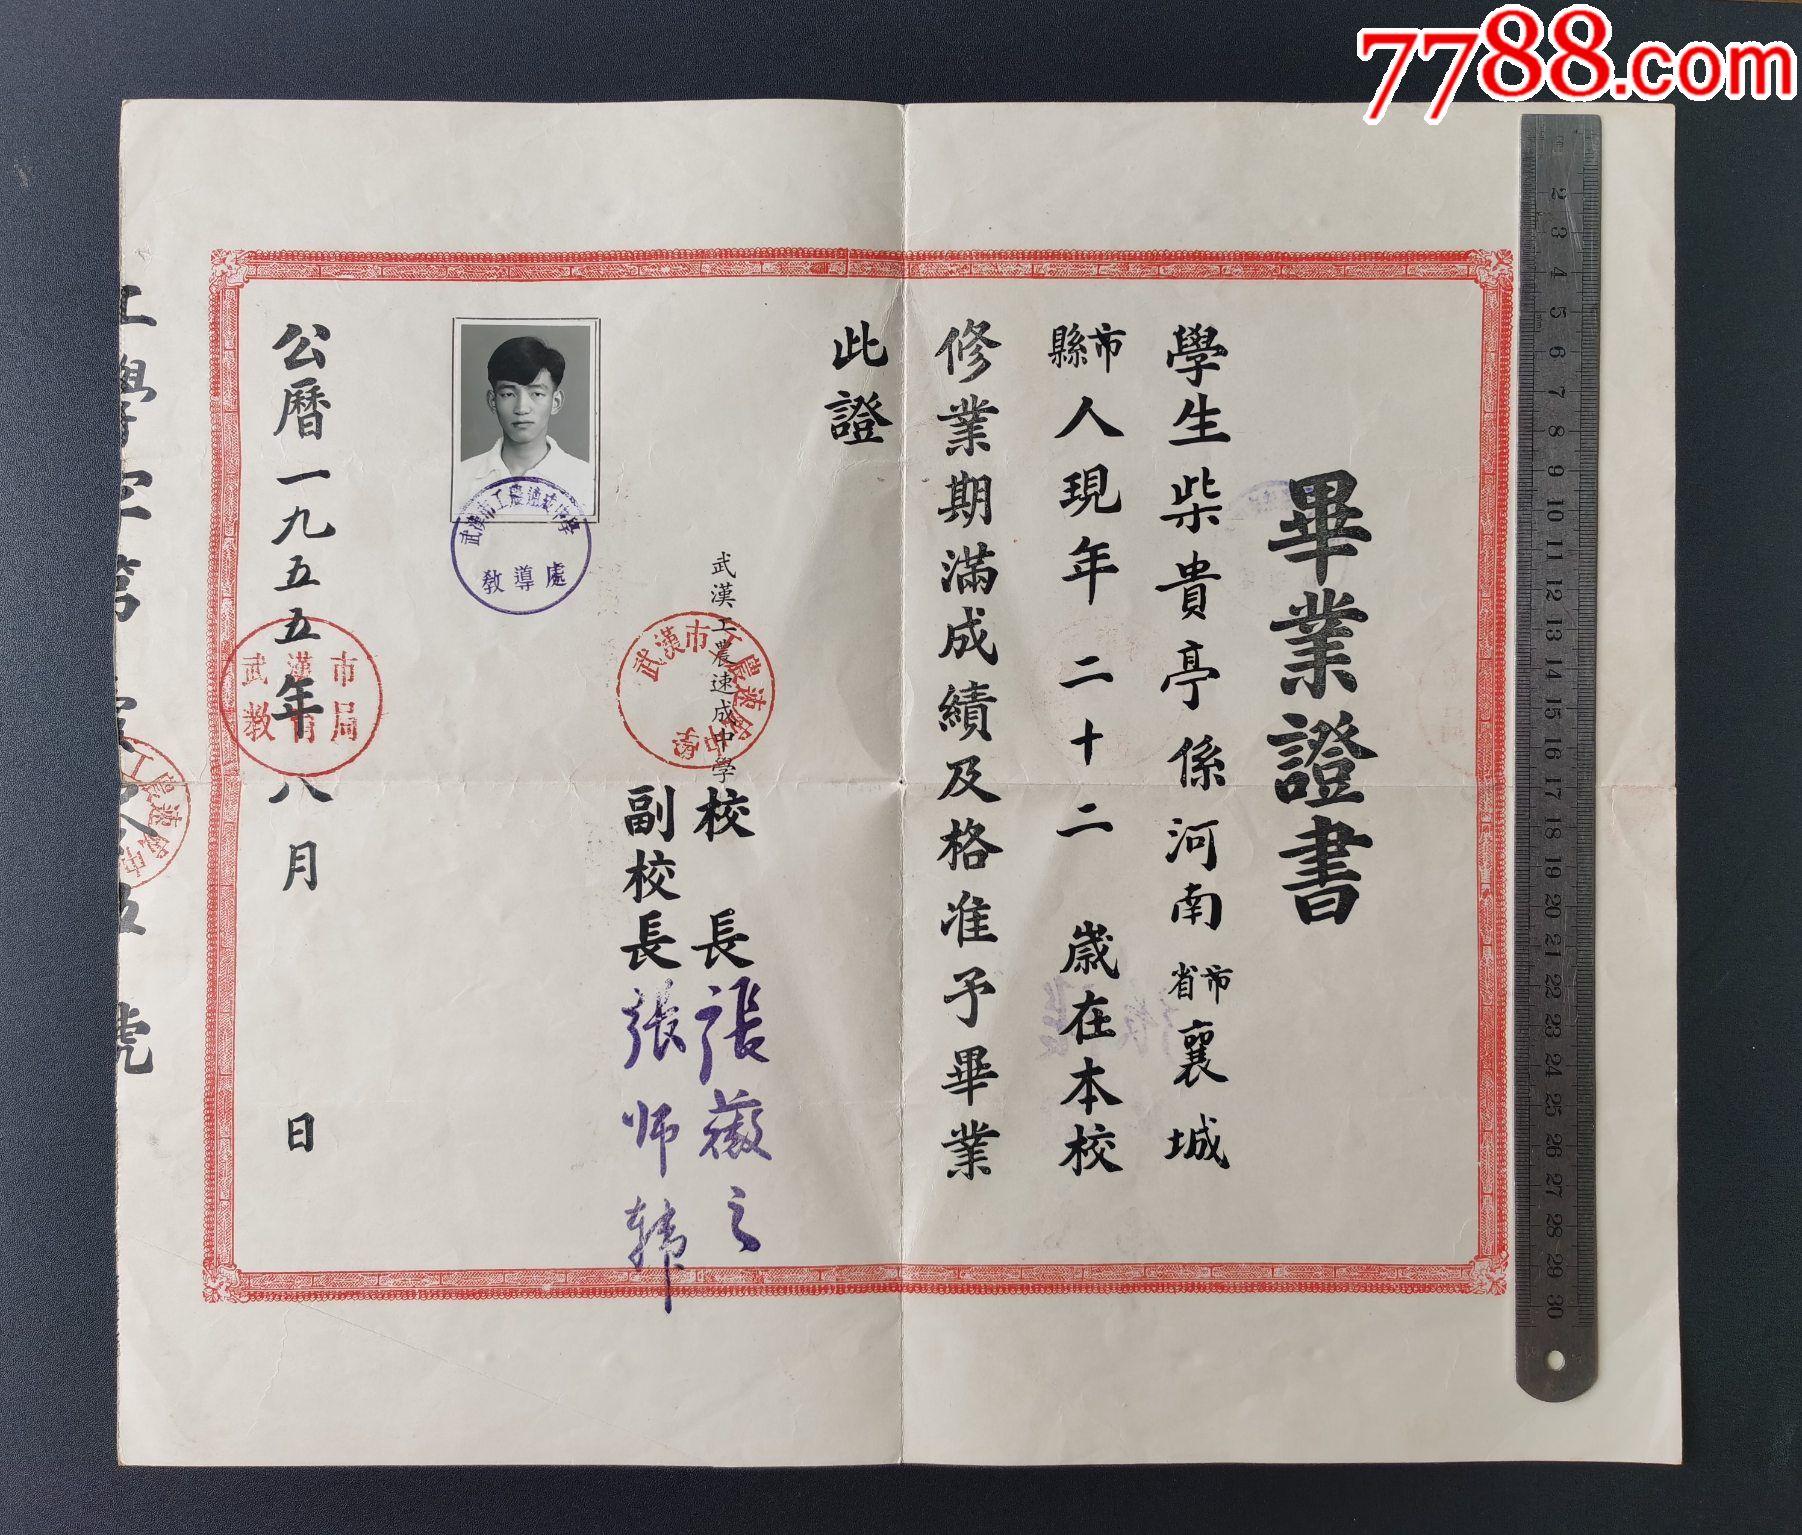 7788.com
畢業證書
學生柴貴亭係河南省市襄城
縣市人現年二十二歲在本校
修業期滿成績及格准予畢業
此證
武漢工農速成中學
校長張薇之
副校長張师韩
武漢市工農速成中學
武漢市工農速成中學
教導處
公曆一九五五年八月 日
武漢市
教育局
工學字第 號
工農速成中
2
3
4
5
6
7
8
9
10
11
12
13
14
15
16
17
18
19
20
21
22
23
24
25
26
27
28
29
30